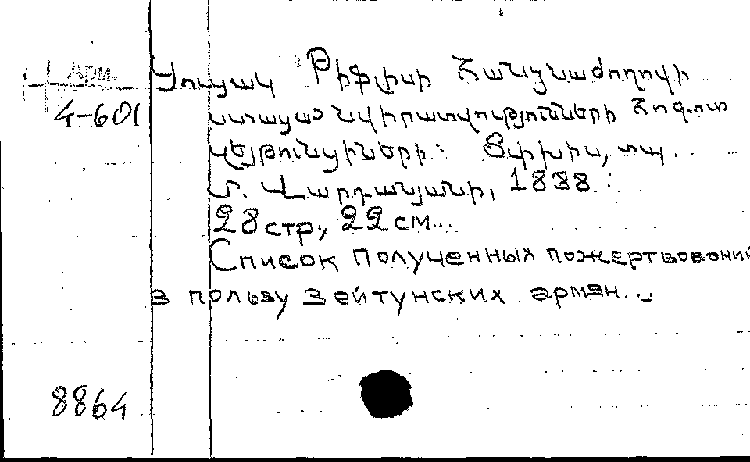 Арм.
4-601
Ցուցակ Թիֆլիսի Հանձնաժողովի
ստացած նվիրատվությունների հոգուտ
Զեյթունցիների: Թիֆլիս, տպ.
Մ. Վարդանյանի, 1888:
28 стр., 22 см..
Список полученных пожертвований
в пользу зейтунских армян..
8864